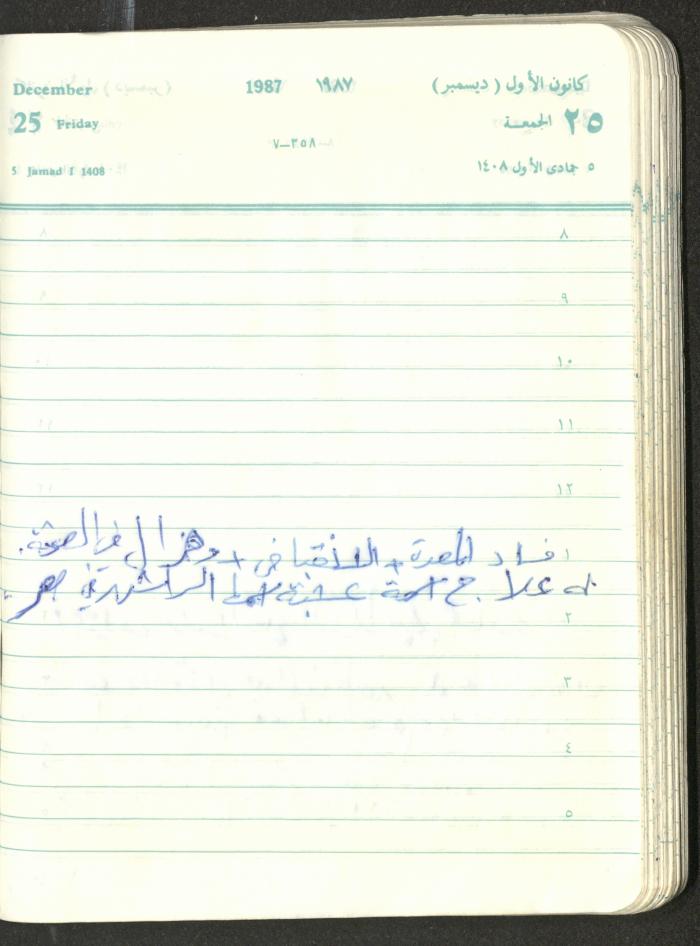 December 1987 ١٩٨٧ كانون الأول ( ديسمبر )
25 Friday ٢٥ الجمعة
٣٥٨–٧
5 Jamad I 1408 ٥ جمادى الأول ١٤٠٨
٨
٩
١٠
١١
١٢
افساد المعدة + الانقباض + وهزال في الصحة.
١
له علاج اسمة عشبة اسمها الراشدية
٢
٣
٤
٥